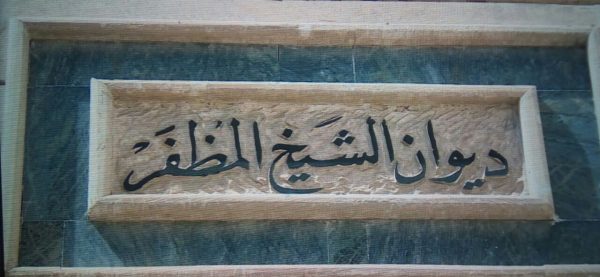 ديوان الشيخ المظفر